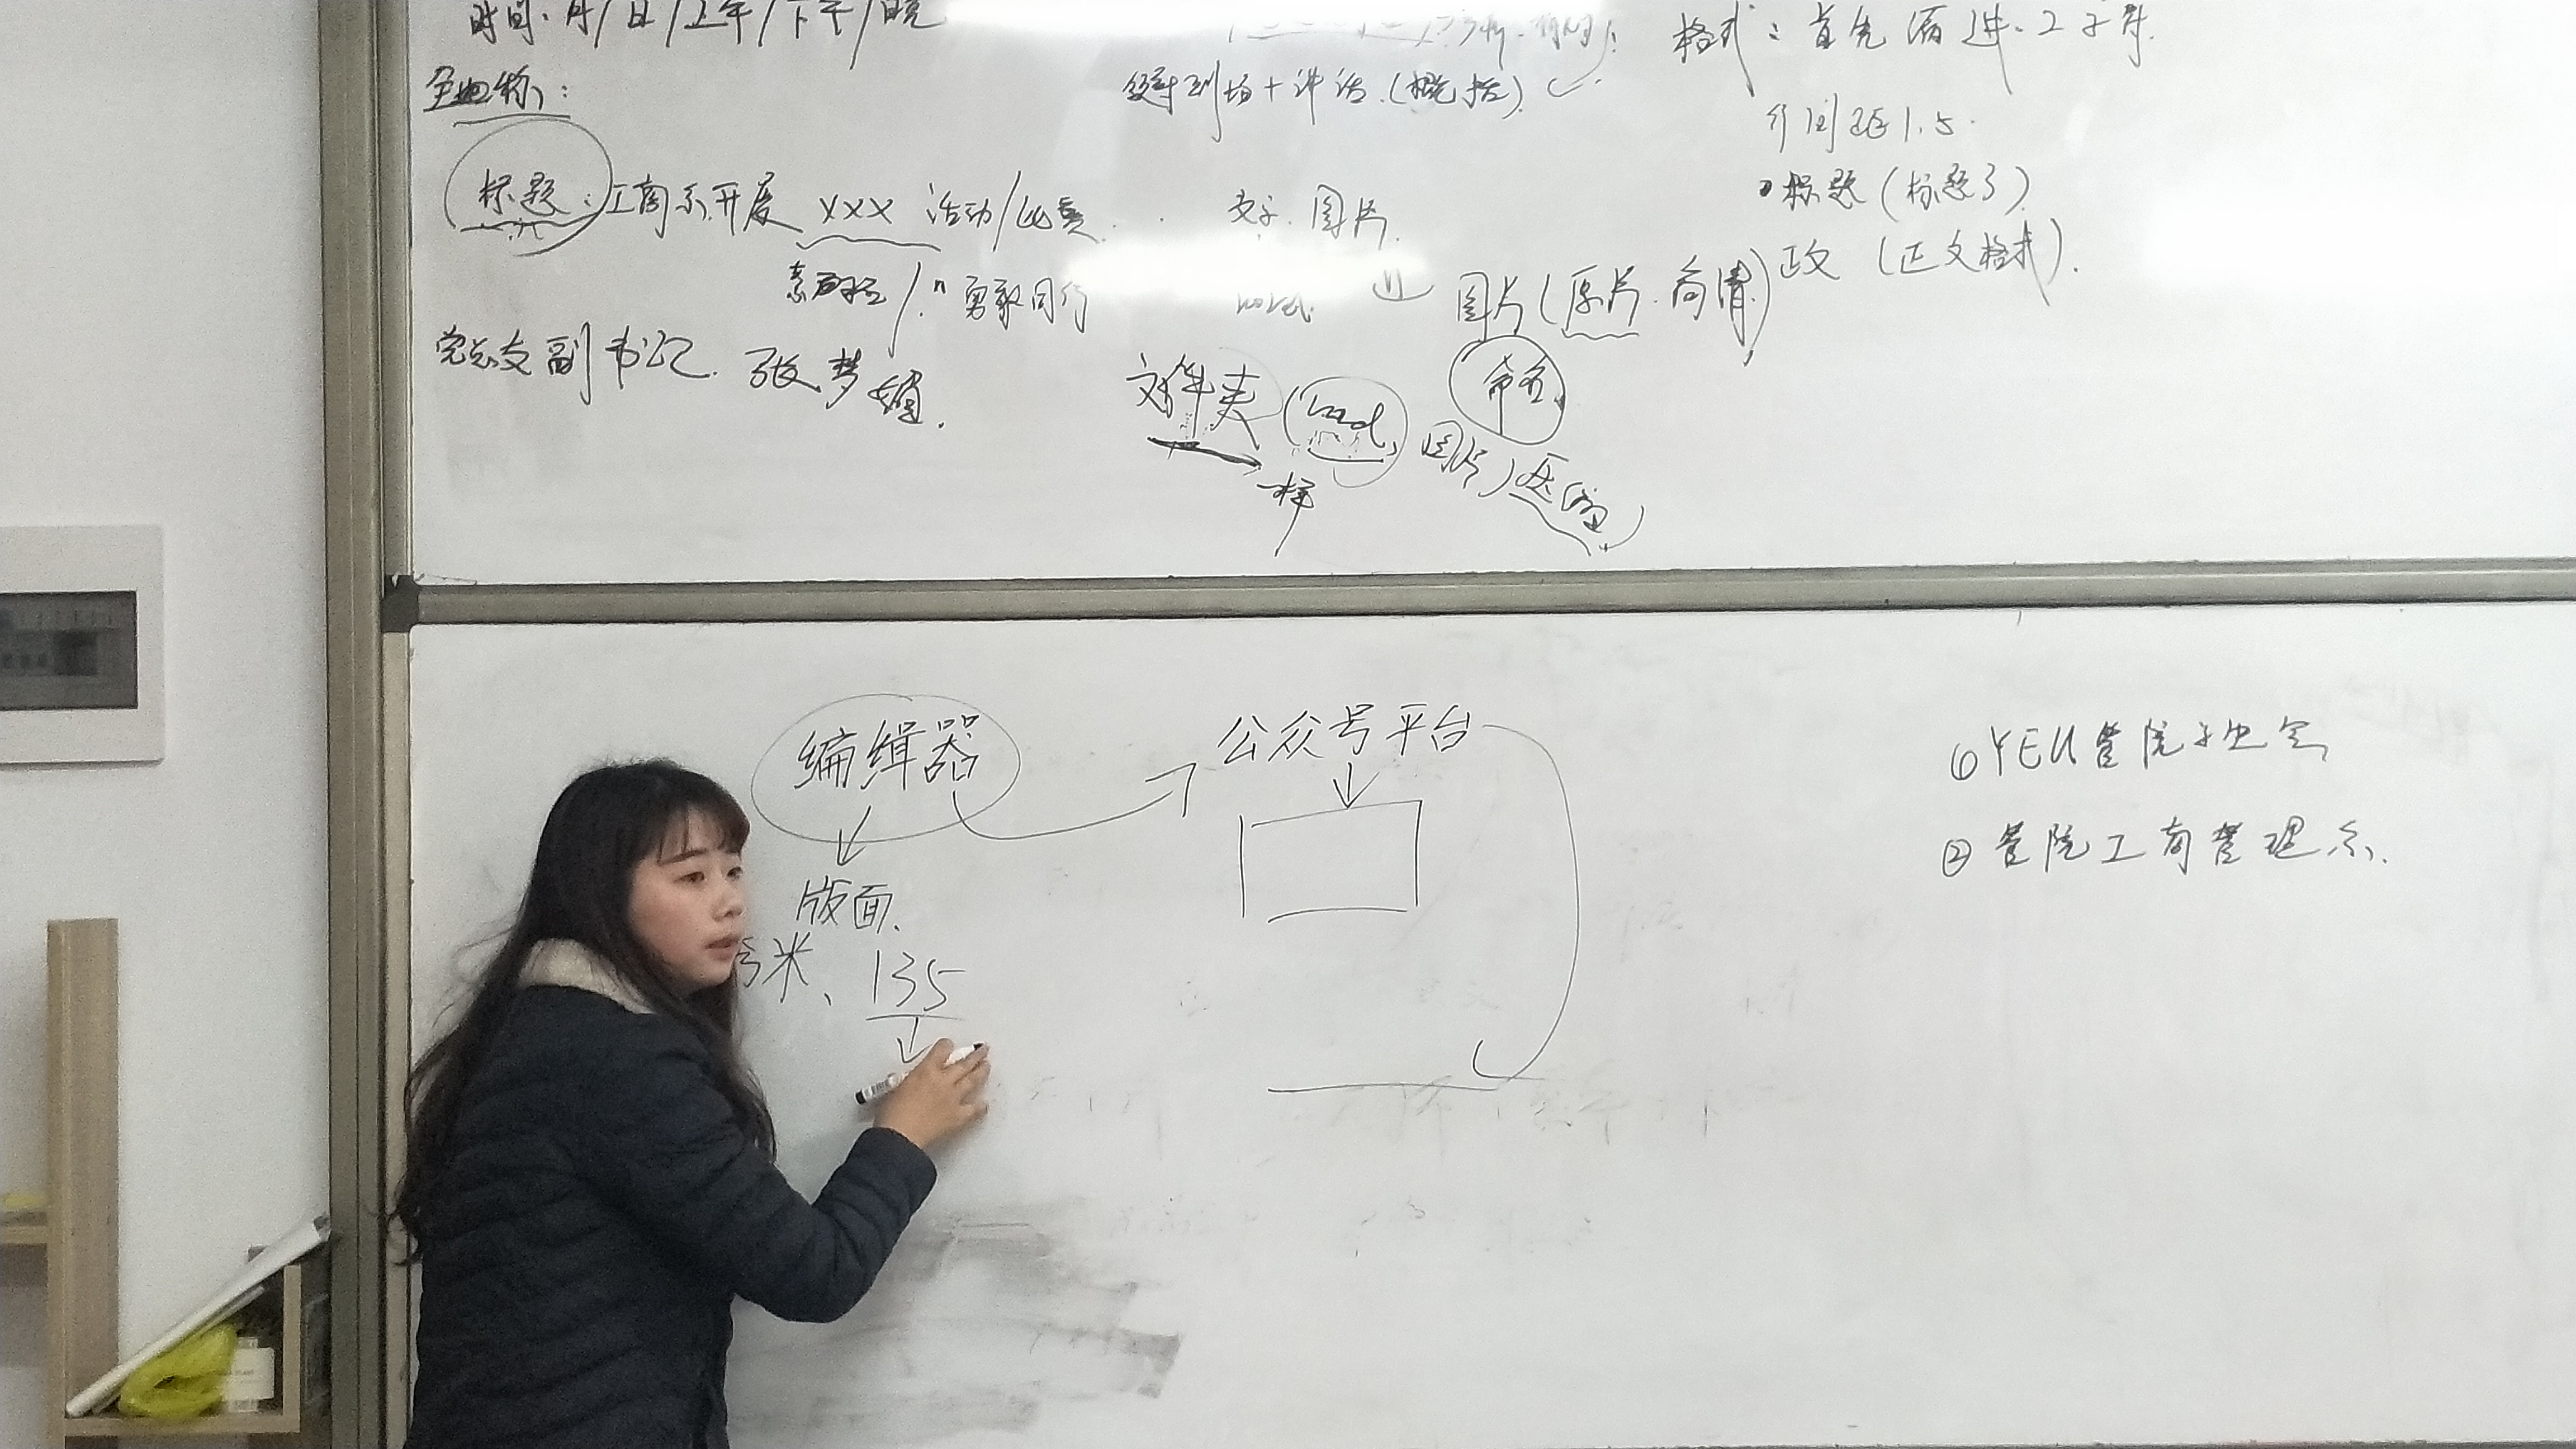 时间:月/日/上午/下午/晚
全地称:
标题:工商系开展 XXX 活动/比赛
素拓/"勇敢同行
党总支副书记 张梦婚.
到场+讲话.(概括)
文字 图片
图片(原片.高清)
命名
文件夹(word,图片)压缩
一样
格式:首先缩进.2字符
行间距1.5.
标题(标题3)
正文(正文格式).
编辑器
公众号平台
版面.
秀米、135
①YEU管院学生会
②管院工商管理系.